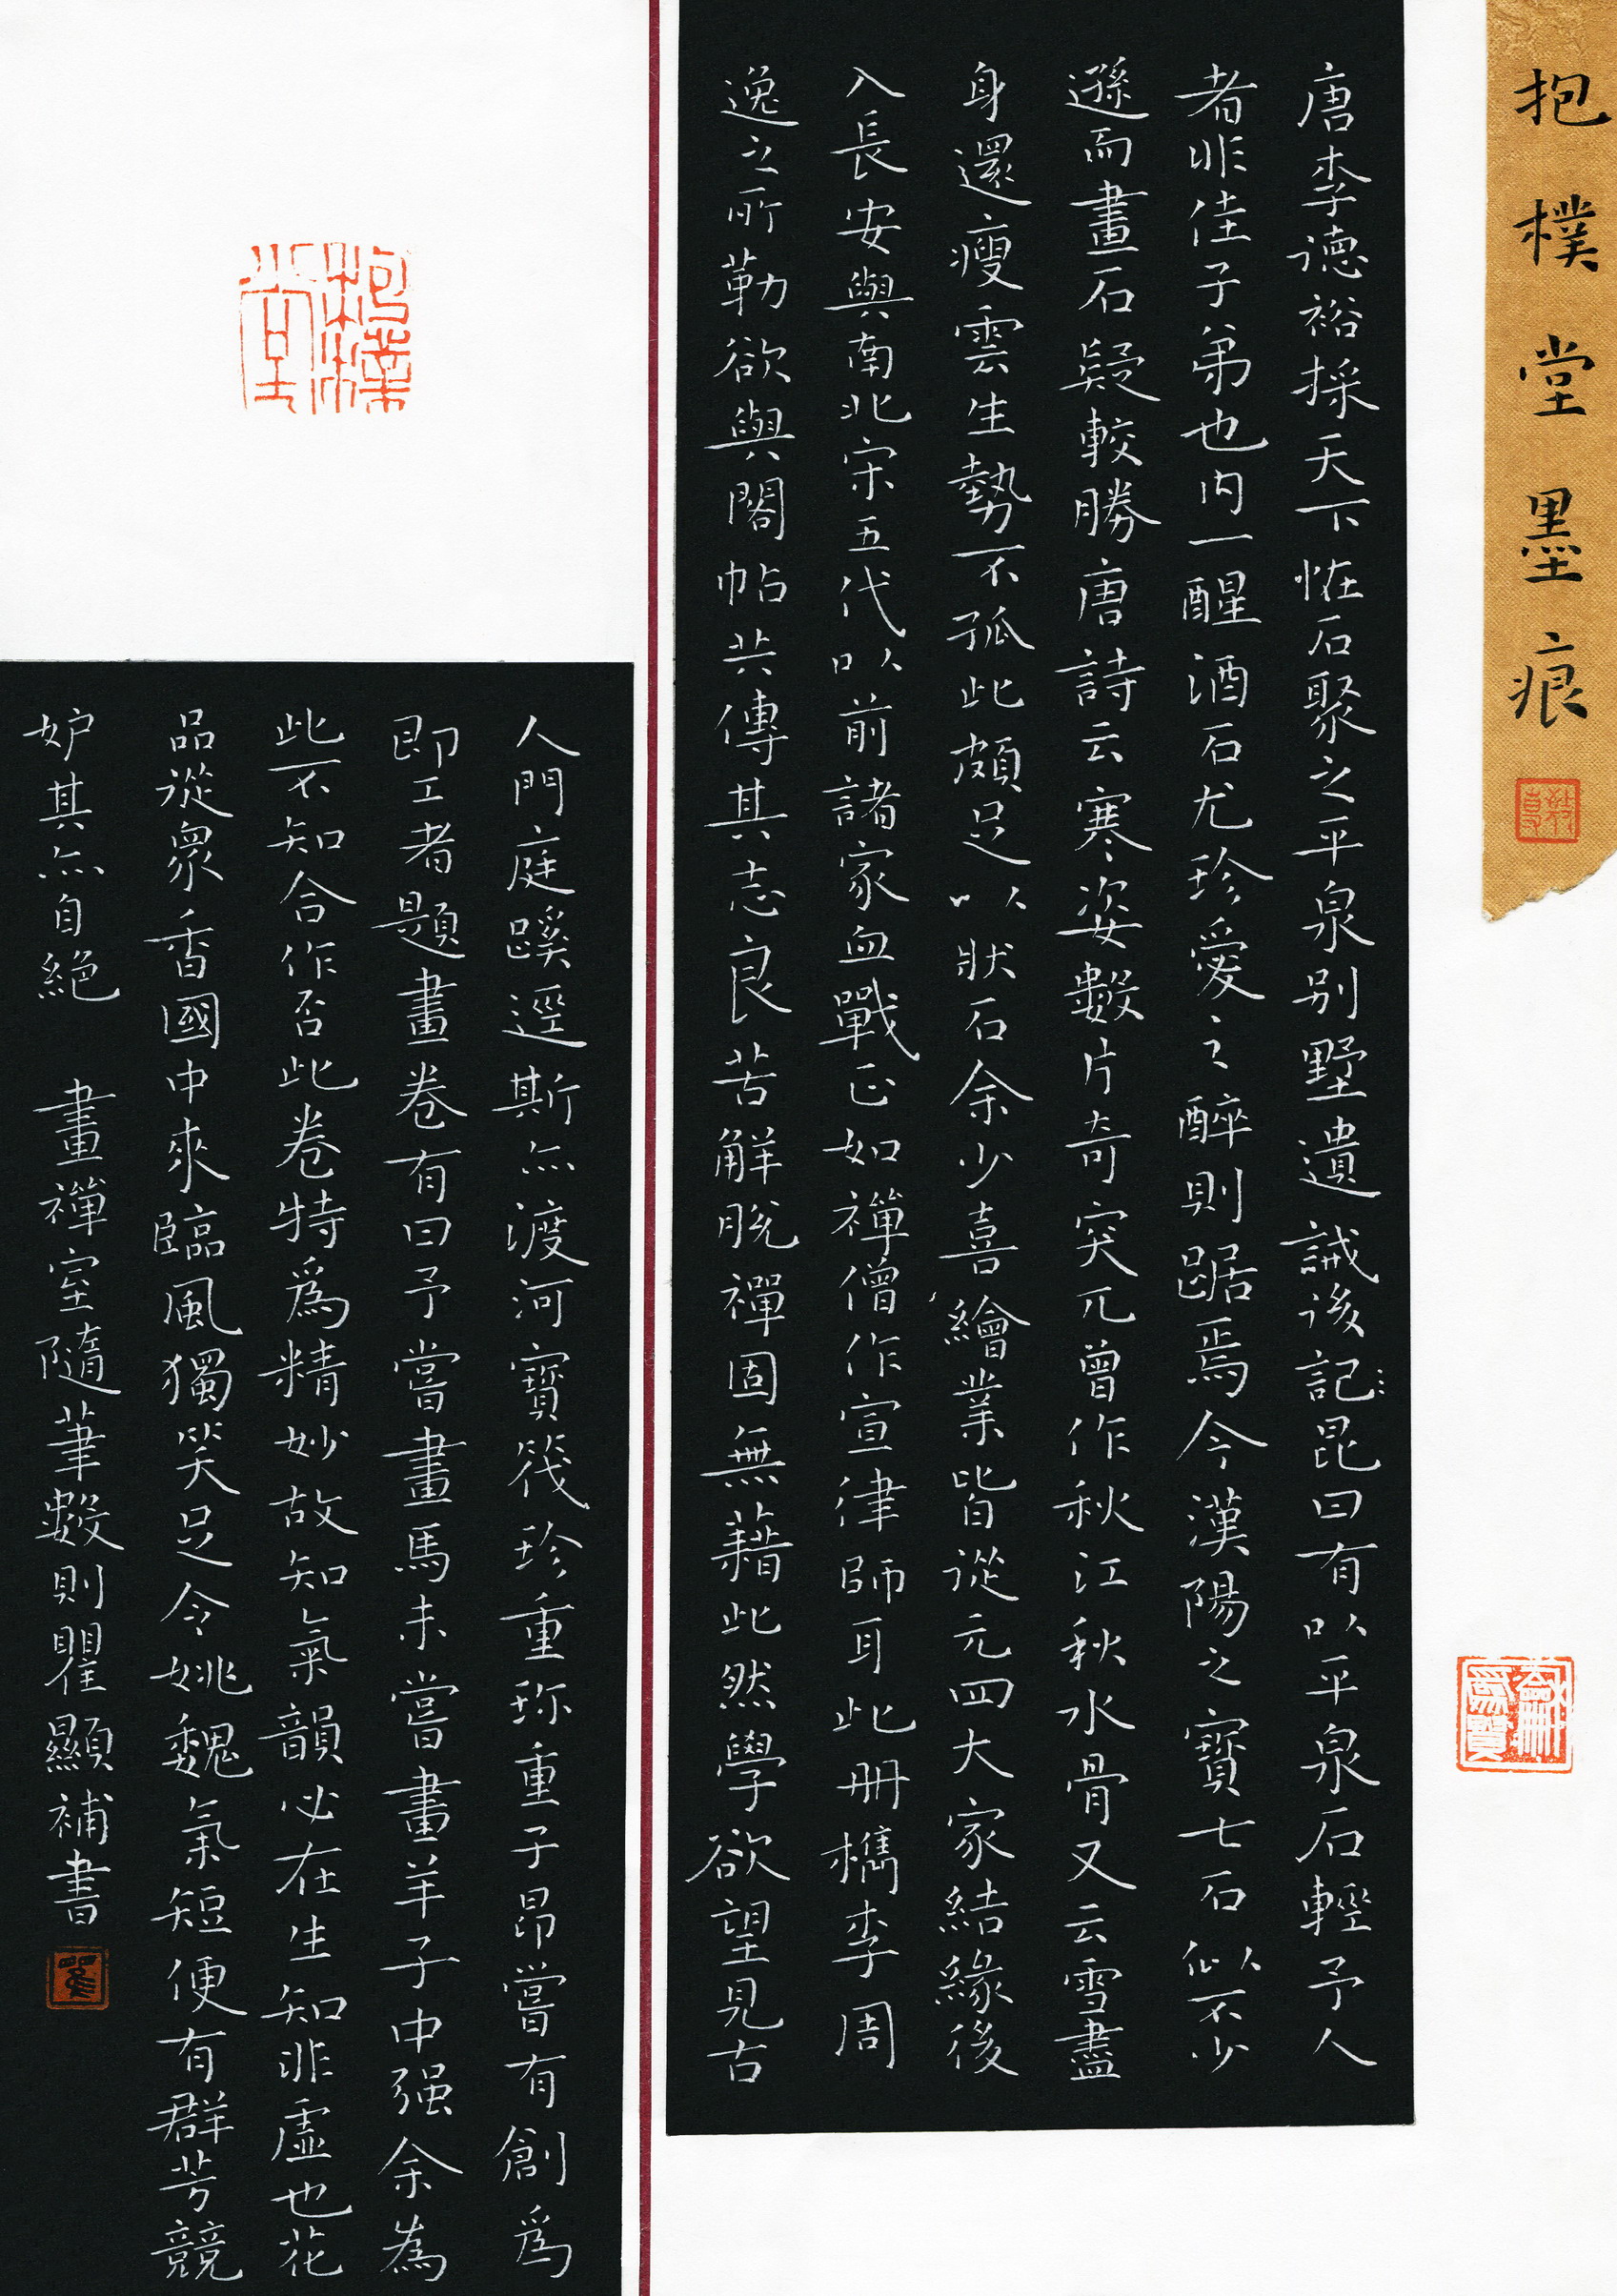 抱樸堂墨痕
唐李德裕採天下恠石聚之平泉別墅遺誡後記昆曰有以平泉石輕予人
者非佳子弟也內一醒酒石尤珍愛之醉則踞焉今漢陽之寶七石似不少
遜而畫石疑較勝唐詩云寒姿數片奇突兀曾作秋江秋水骨又云雪盡
身還瘦雲生勢不孤此頗足以狀石余少喜繪業皆從元四大家結緣後
入長安與南北宋五代以前諸家血戰正如禪僧作宣律師耳此冊檇李周
逸之所勒欲與閣帖共傳其志良苦解脫禪固無藉此然學欲望見古
人門庭蹊逕斯亦渡河寶筏珍重珎重子昂嘗有創爲
即工者題畫卷有曰予嘗畫馬未嘗畫羊子中强余為
此不知合作否此卷特爲精妙故知氣韻必在生知非虛也花
品從衆香國中來臨風獨笑足令姚魏氣短便有群芳競
妒其亦自絕 畫禪室隨筆數則瞿顯補書
抱樸堂